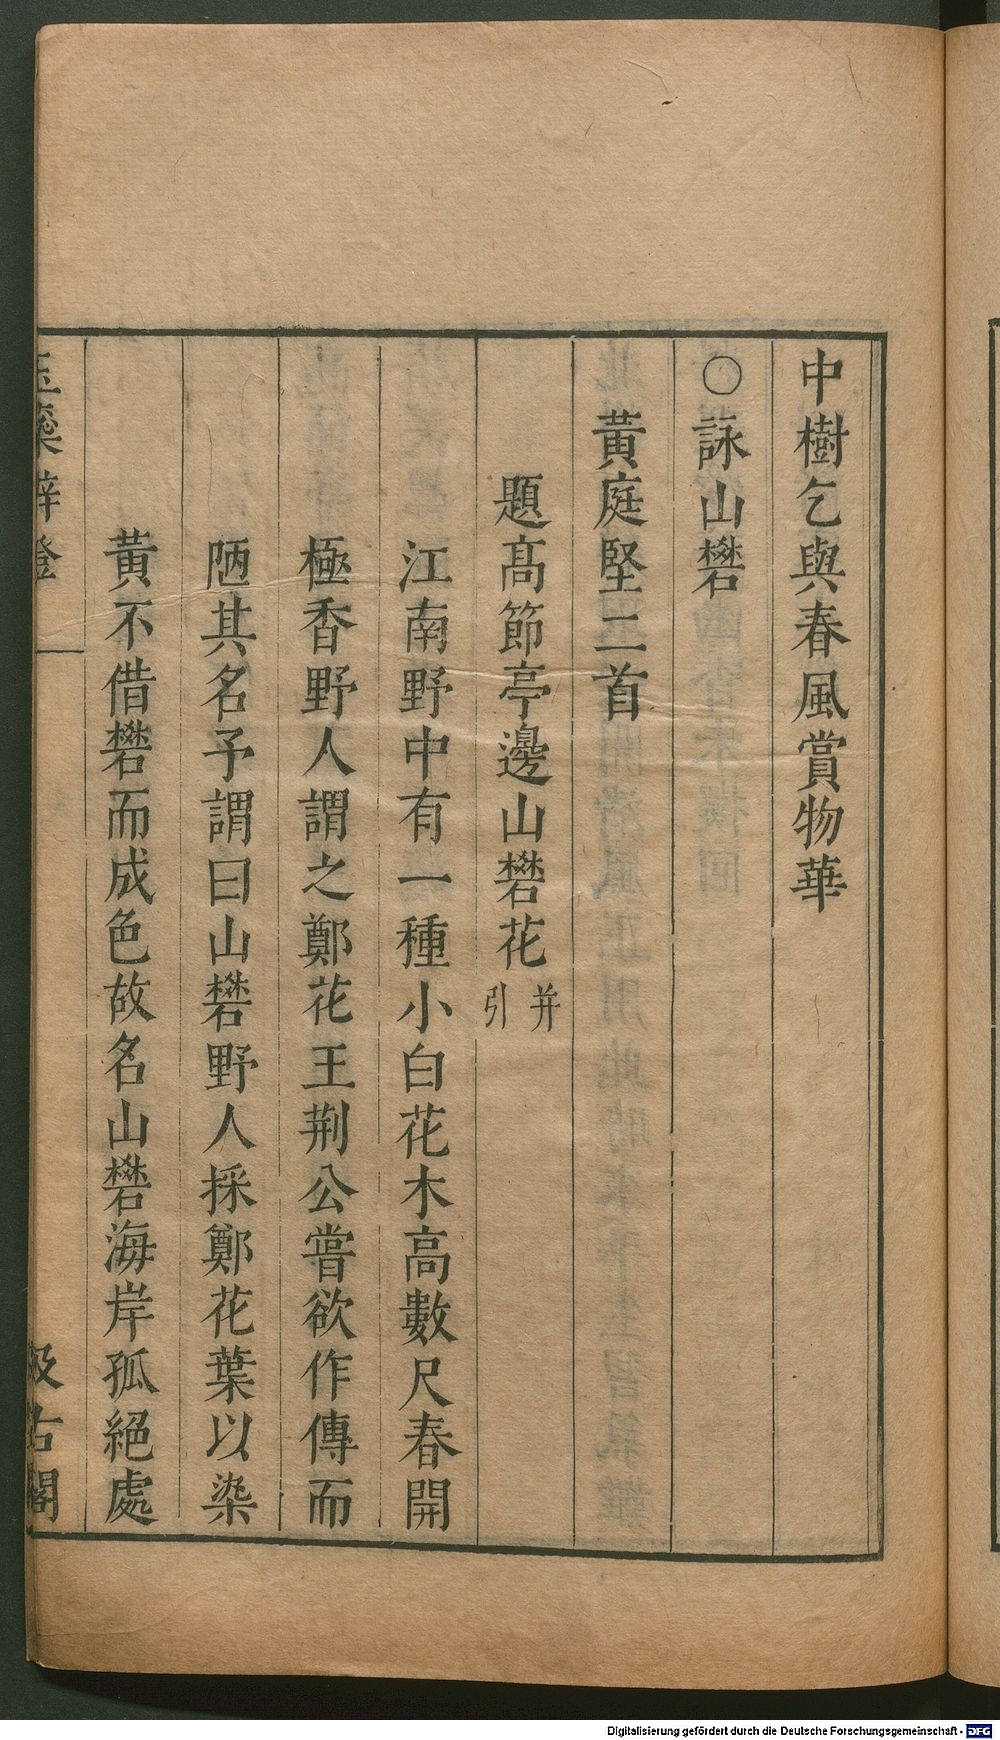 中樹乞與春風賞物華
○詠山礬
黃庭堅二首
題高節亭邊山礬花并引
江南野中有一種小白花木高數尺春開
極香野人謂之鄭花王荆公嘗欲作傳而
陋其名予謂曰山礬野人採鄭花葉以染
黃不借礬而成色故名山礬海岸孤絕處
玉蘂辨證 一 汲古閣
Digitalisierung gefördert durch die Deutsche Forschungsgemeinschaft - DFG